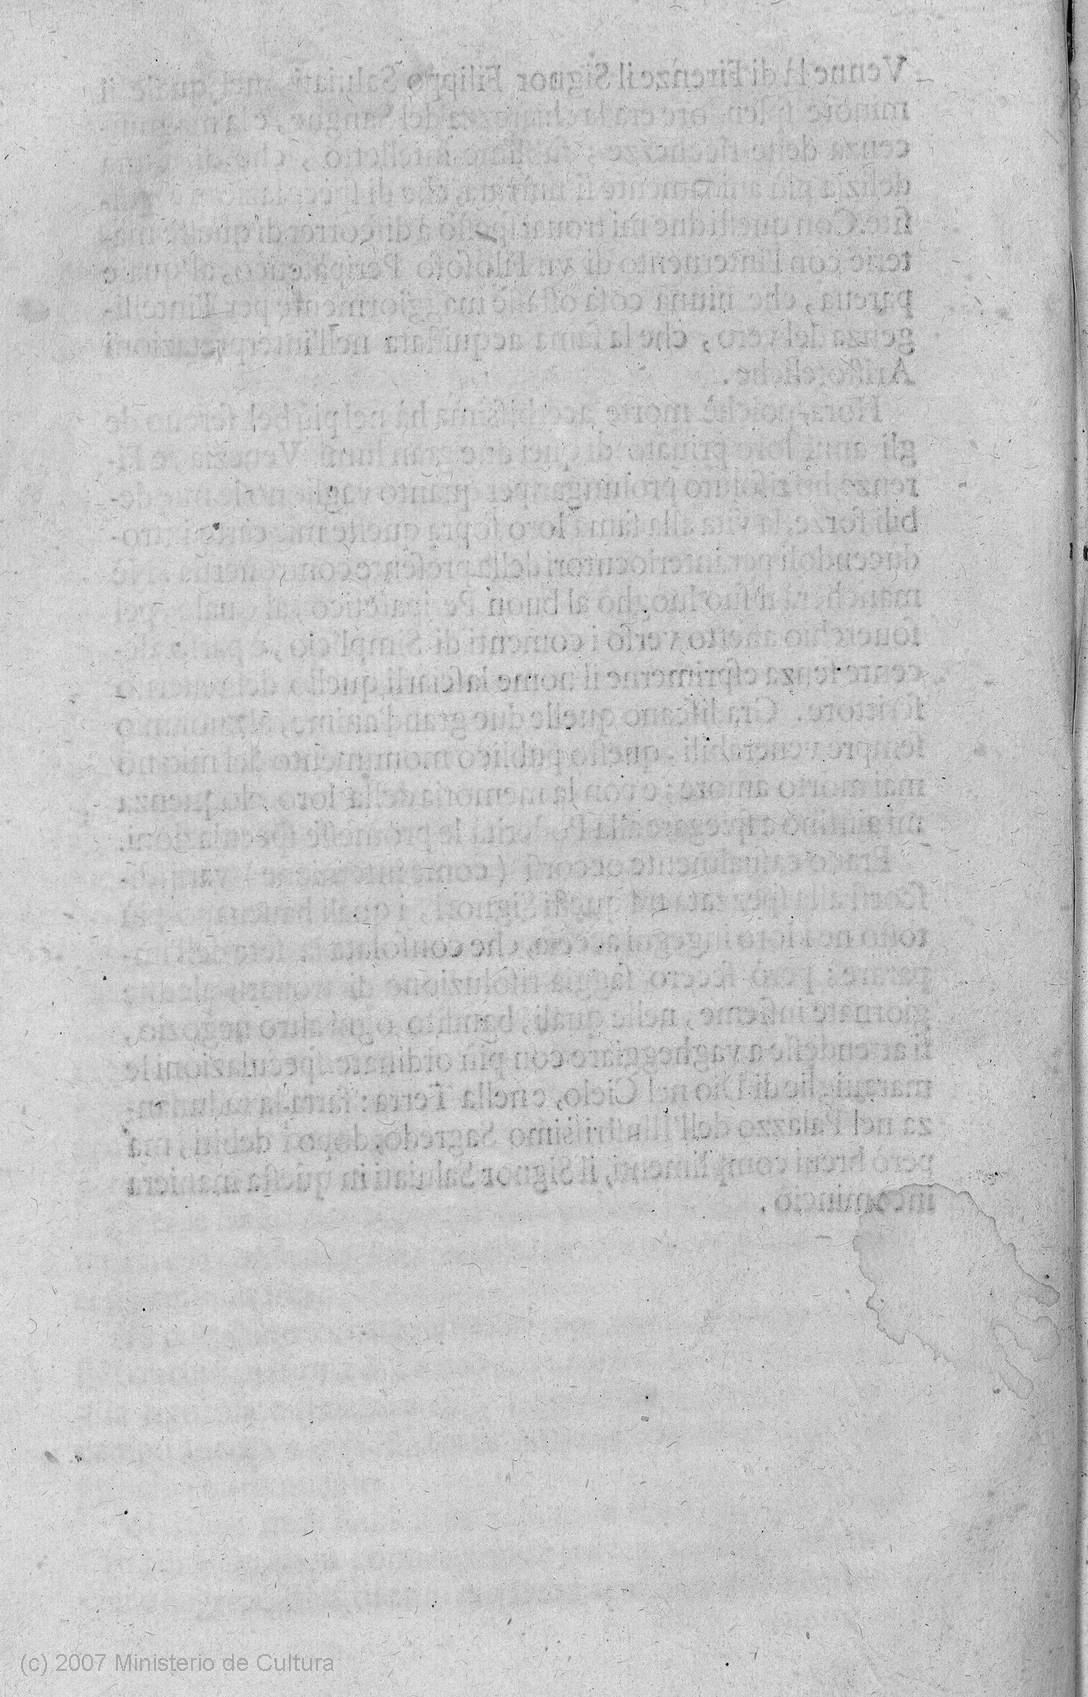 Venne lì di Firenze il Signor Filippo Saluiati, nel quale il
minore splendore era la chiarezza del sangue, e la magnifi-
cenza delle ricchezze; sublime intelletto, che di niuna
delizia più auidamente si nutriua, che di specolazioni esqui-
site. Con questi due mi trouai spesso à discorrer di queste ma-
terie con l'interuento di vn Filosofo Peripatetico, al quale
pareua, che niuna cosa ostasse maggiormente per l'intelli-
genza del vero, che la fama acquistata nell'interpretazioni
Aristoteliche.
Hora, poiche morte acerbissima hà nel più bel sereno de
gli anni loro priuato di quei due gran lumi Venezia, e Fi-
renze, hò risoluto prolungar per quanto vagliono le mie de-
bili forze, la vita alla fama loro sopra queste mie carte, intro-
ducendoli per interlocutori della presente controuersia. Nè
mancherà il suo luogho al buon Peripatetico, al quale pel
souerchio affetto verso i comenti di Simplicio, è parso de-
cente senza esprimerne il nome lasciarli quello del reuerito
scrittore. Gradiscano quelle due grand'anime, al cuor mio
sempre venerabili, questo publico monumento del mio no
mai morto amore; e con la memoria della loro eloquenza
mi aiutino à spiegare alla Posterità le promesse speculazioni.
Erano casualmente occorsi (come interuiene) varij di-
scorsi alla spezzata trà questi Signori, i quali haueuano più
tosto ne i loro ingegni accesa, che consolata la sete dell'im-
parare; però fecero saggia risoluzione di trouarsi alcune
giornate insieme, nelle quali, bandito ogni altro negozio,
si attendesse a vagheggiare con più ordinate speculazioni le
marauiglie di Dio nel Cielo, e nella Terra: fatta la radunan-
za nel Palazzo dell'Illustrissimo Sagredo, dopo i debiti, mà
però breui complimenti, il Signor Saluiati in questa maniera
incominciò.
(c) 2007 Ministerio de Cultura